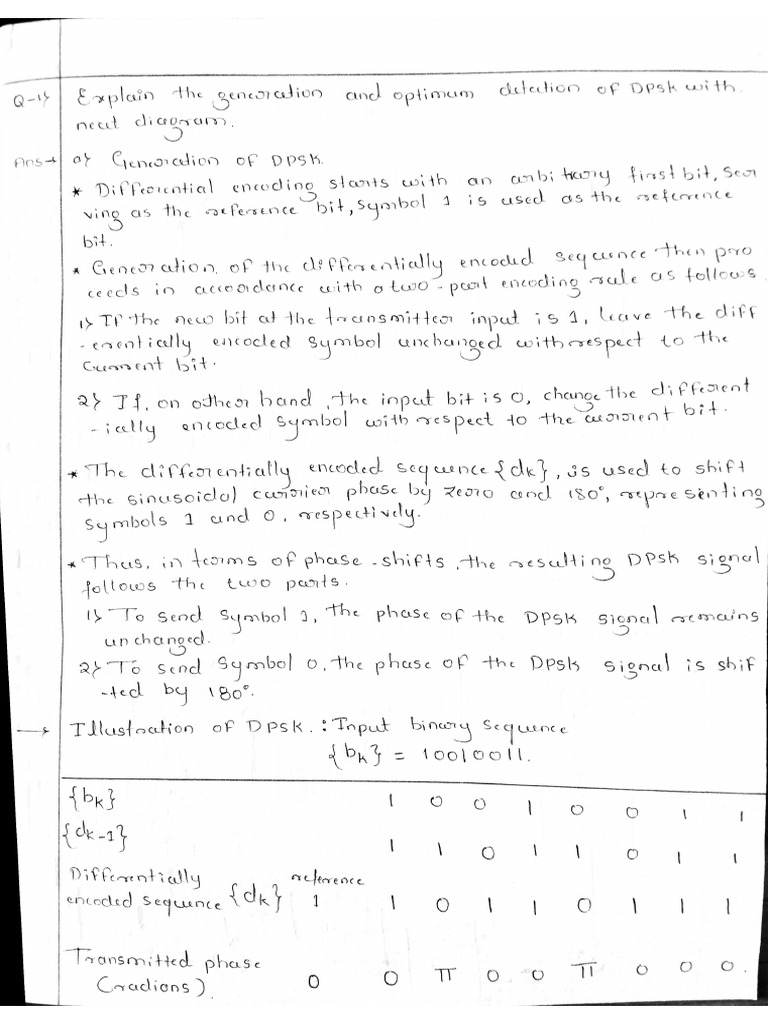 Q-1} Explain the generation and optimum detection of DPSK with
neat diagram.
Ans→ a} Generation of DPSK.
* Differential encoding starts with an arbitrary first bit, ser
ving as the reference bit, symbol 1 is used as the reference
bit.
* Generation of the differentially encoded sequence then pro
ceeds in accordance with a two-part encoding rule as follows
1} If the new bit at the transmitter input is 1, leave the diff
-erentially encoded symbol unchanged with respect to the
current bit.
2} If, on other hand, the input bit is 0, change the different
-ially encoded symbol with respect to the current bit.
* The differentially encoded sequence {dk}, is used to shift
the sinusoidal carrier phase by zero and 180°, representing
symbols 1 and 0, respectively.
* Thus, in terms of phase-shifts, the resulting DPSK signal
follows the two parts.
1} To send symbol 1, the phase of the DPSK signal remains
unchanged.
2} To send symbol 0, the phase of the DPSK signal is shif
-ted by 180°.
→ Illustration of DPSK.: Input binary sequence
{bk} = 10010011.
{bk} 1 0 0 1 0 0 1 1
{dk-1} 1 1 0 1 1 0 1 1
Differentially reference
encoded sequence {dk} 1 1 0 1 1 0 1 1 1
Transmitted phase
(radians) 0 0 π 0 0 π 0 0 0.